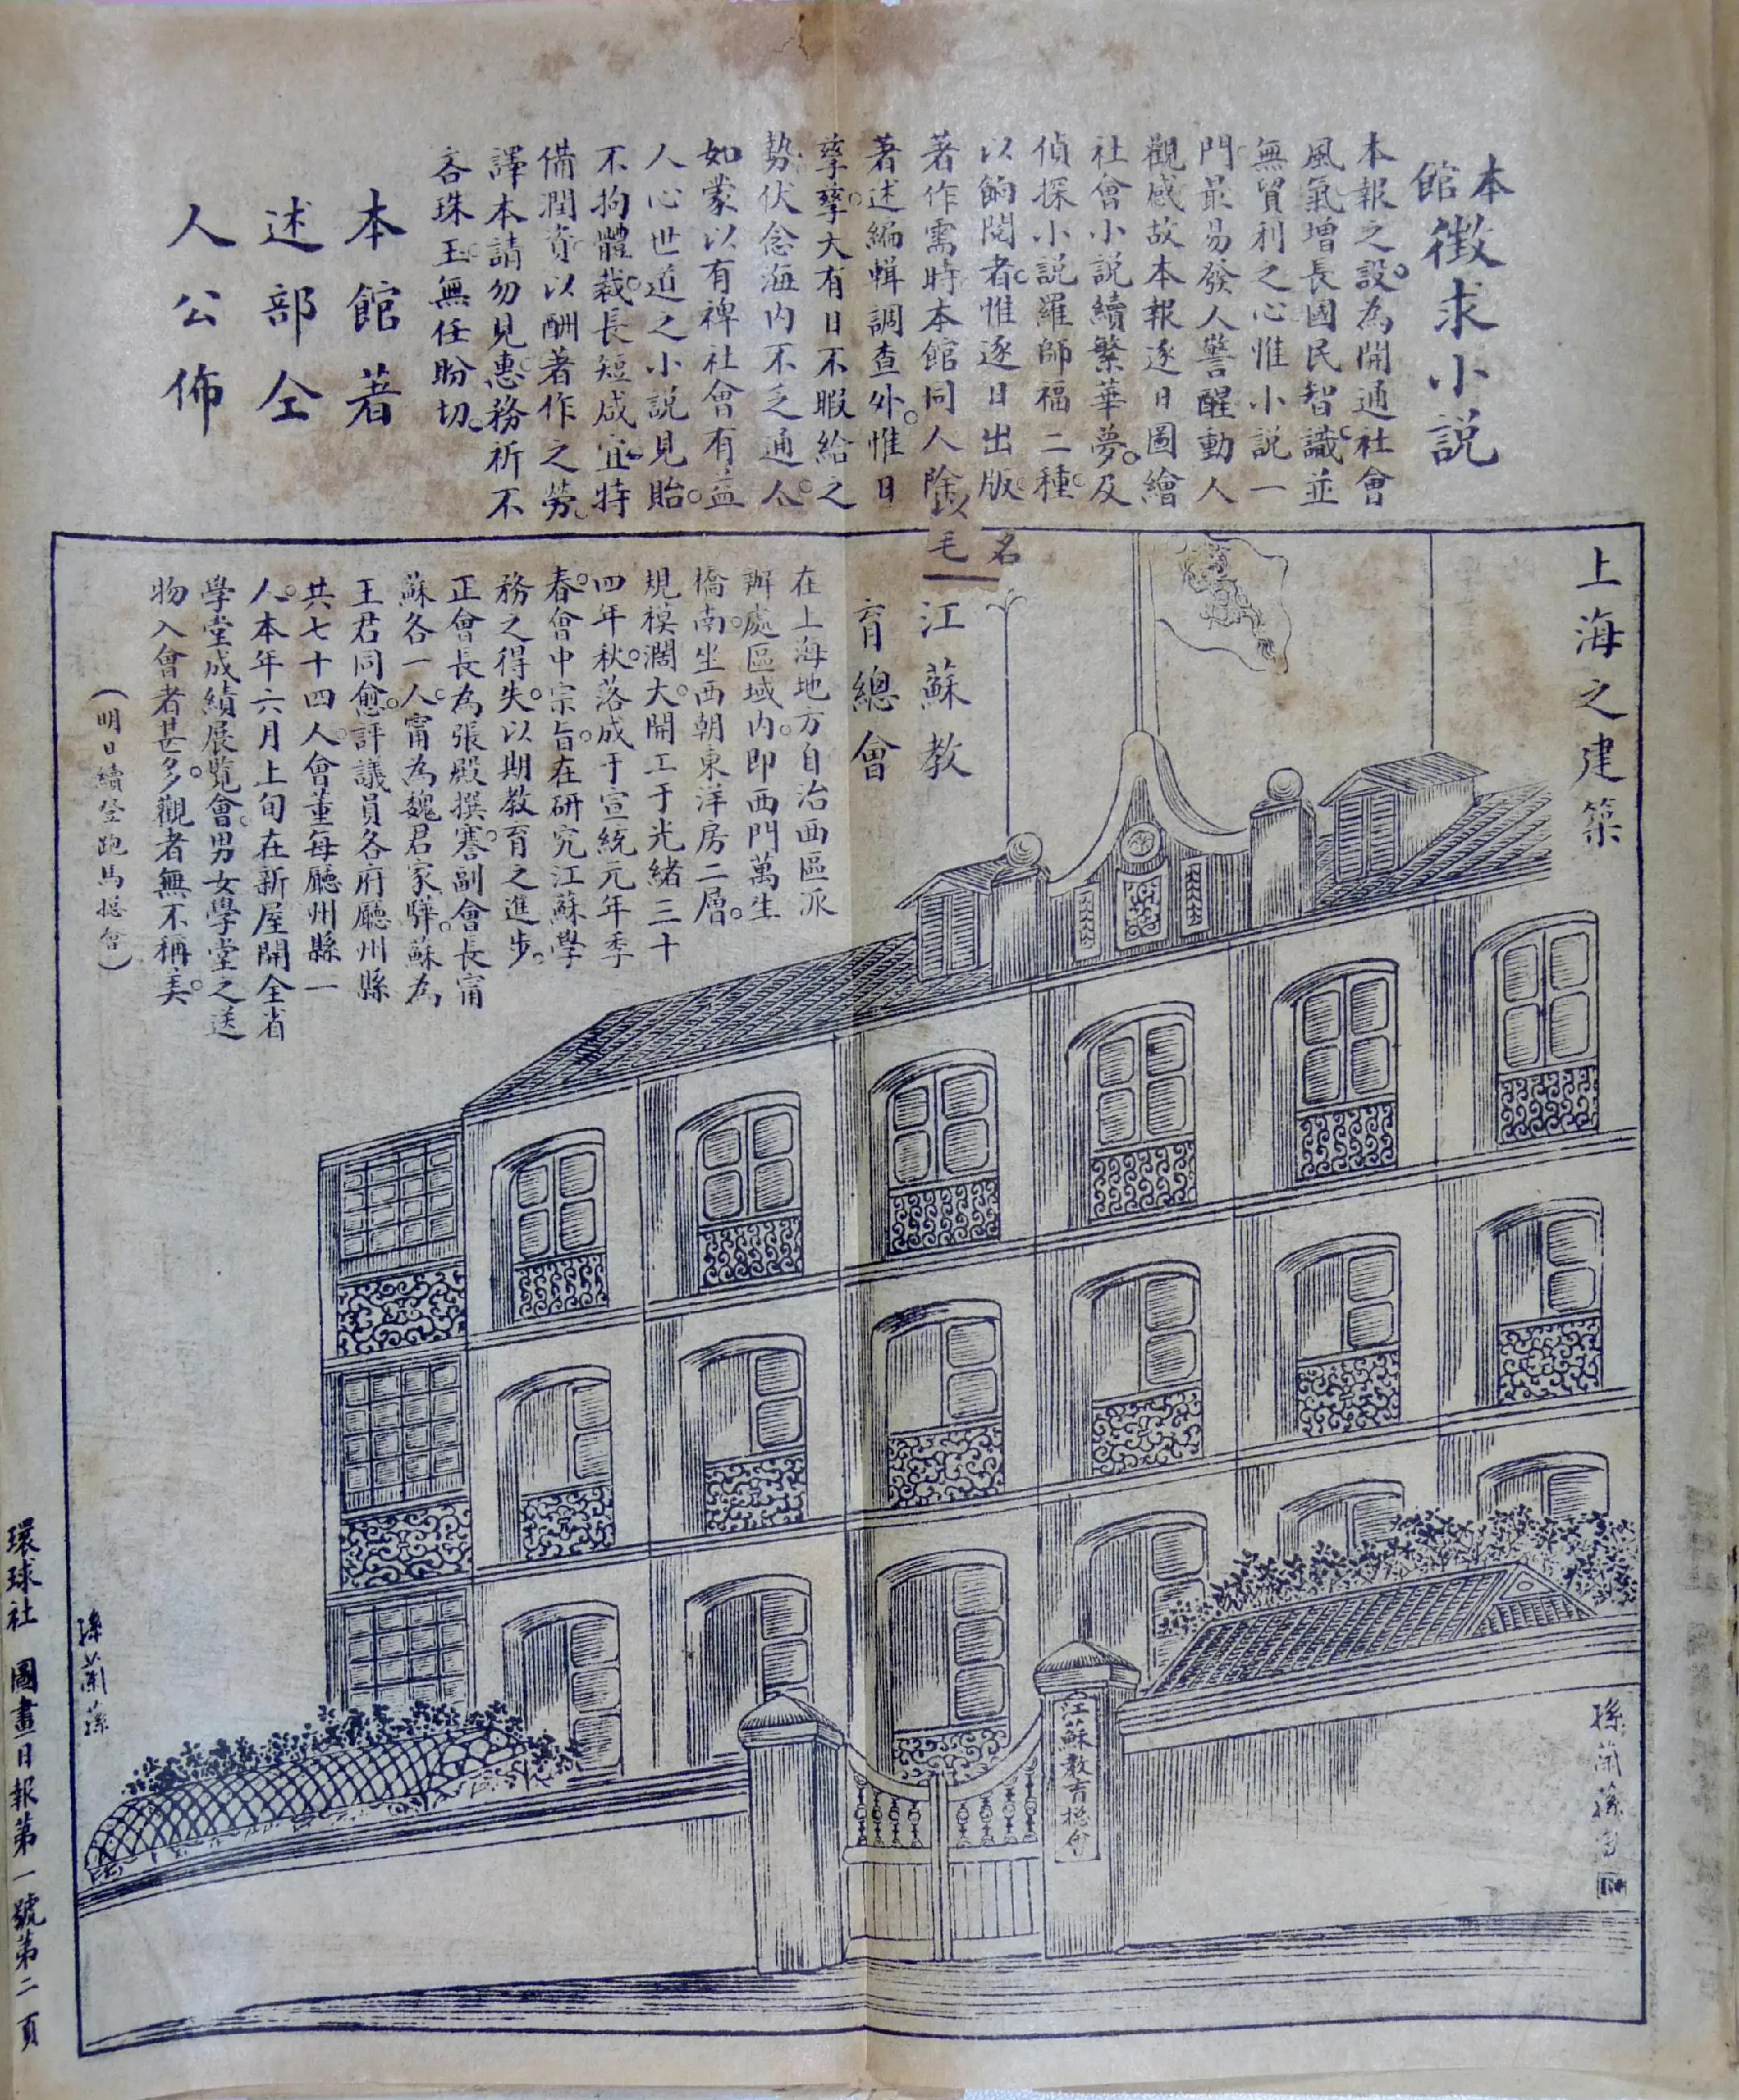 本館徵求小說
本報之設。為開通社會
風氣。增長國民智識。並
無貿利之心。惟小說一
門。最易發人警醒。動人
觀感。故本報逐日圖繪
社會小說續繁華夢。及
偵探小說羅師福二種。
以餉閱者。惟逐日出版。
著作需時。本館同人。除
著述編輯調查外。惟日
孳孳。大有日不暇給之
勢。伏念海內不乏通人。
如蒙以有裨社會有益
人心世道之小說見貽。
不拘體裁。長短咸宜。特
備潤資。以酬著作之勞。
譯本請勿見惠。務祈不
吝珠玉。無任盼切。
本館著
述部仝
人公佈
上海之建築
名
毛
江蘇教
育總會
在上海地方自治西區派
辦處區域內。即西門萬生
橋南。坐西朝東。洋房二層。
規模濶大。開工于光緒三十
四年秋。落成于宣統元年季
春。會中宗旨。在研究江蘇學
務之得失。以期教育之進步。
正會長為張殿撰謇。副會長甯
蘇各一人。甯為魏君家驊。蘇為
王君同愈。評議員各府廳州縣
共七十四人。會董每廳州縣一
人。本年六月上旬在新屋開全省
學堂成績展覽會。男女學堂之送
物入會者甚多。觀者無不稱美。
（明日續登跑馬總會）
江蘇教育總會
孫蘭蓀
孫蘭蓀
環球社 圖畫日報第一號第二頁